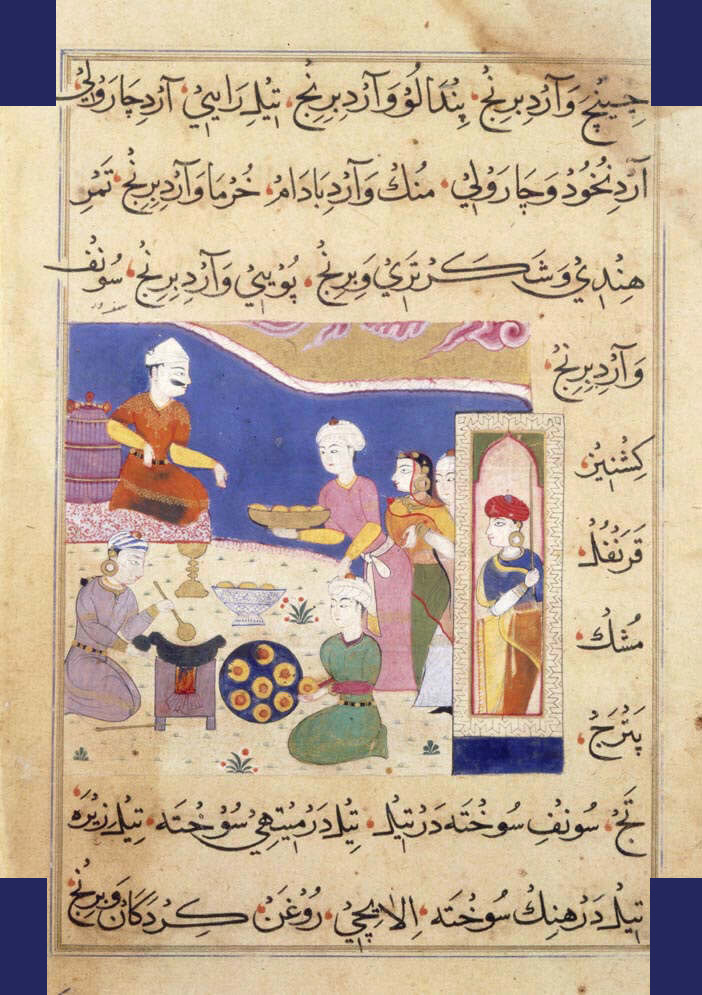 چِینچ وَ آردِ بِرِنج، پِندالُو وَ آردِ بِرِنج، تیلِ رایِیْ، آردِ چارَولِیْ
آردِ نُخُود وَ چارَولِیْ، مُنْك وَ آردِ بَادَامْ، خُرْمَا وَ آردِ بِرِنج، تَمْرِ
هِنْدِيْ وَ شَكَر تَرِيْ وَ بِرِنج، پُوْیِيْ وَ آردِ بِرِنج، سُونْف
وَ آردِ بِرِنج،
كِشْنِیزْ،
قَرَنْفُلْ،
مُشْك،
پَتْرَجْ،
تَجْ، سُونْفِ سُوخْتَه دَرْ تِیلْ، تِیلْ دَرْ مِیتْهِيْ سُوخْتَه، تِیلِ زِیْرَه
تِیلْ دَرْ هِنْك سُوخْتَه، اِلَایِچِيْ، رُوغَنْ، كِرْدَگَانْ وَ بِرِنج،